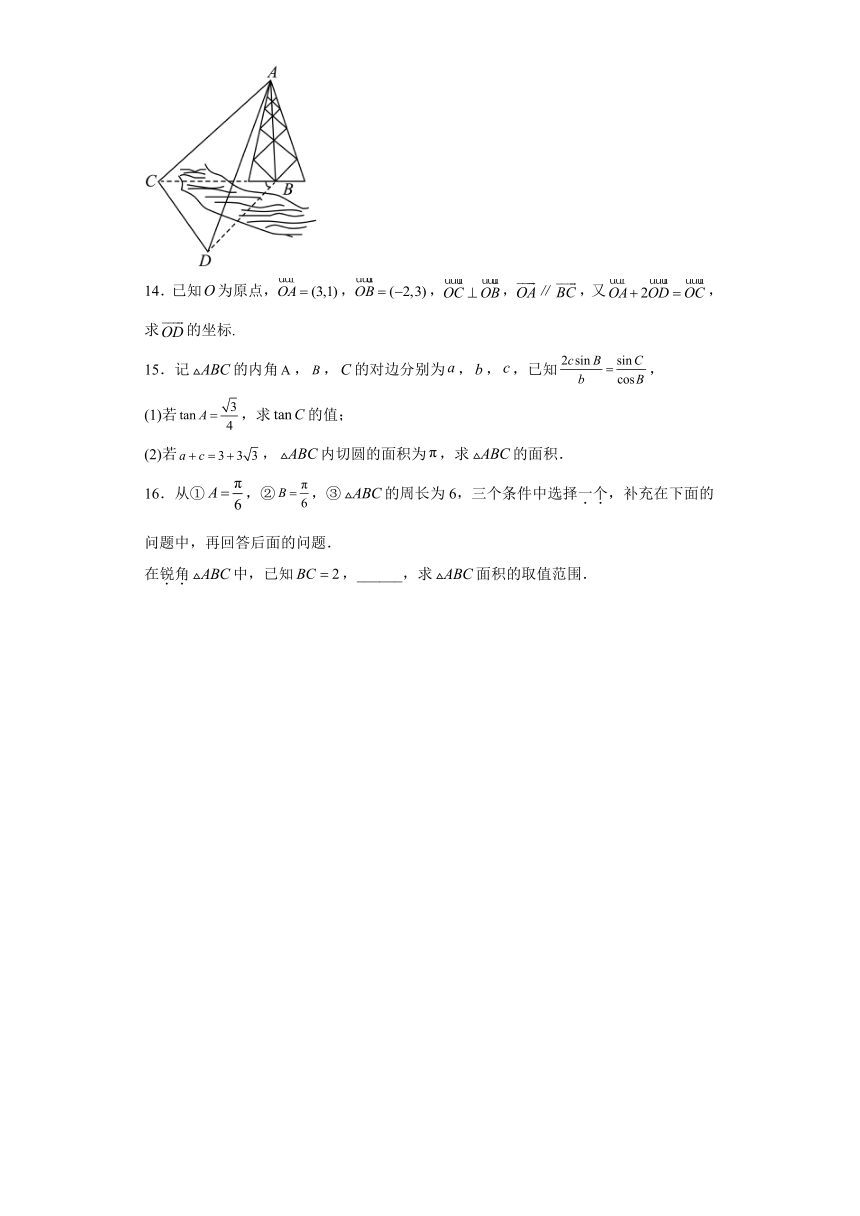 A
C
B
D
14.已知O为原点,OA=(3,1),OB=(−2,3),OC⊥OB,OA∥BC,又OA+2OD=OC,
求OD的坐标.
15.记△ABC的内角A,B,C的对边分别为a,b,c,已知2c sin B/b=sin C/cos B,
(1)若tan A=√3/4,求tan C的值;
(2)若a+c=3+3√3,△ABC内切圆的面积为π,求△ABC的面积.
16.从①A=π/6,②B=π/6,③△ABC的周长为6,三个条件中选择一个,补充在下面的
问题中,再回答后面的问题.
在锐角△ABC中,已知BC=2,______,求△ABC面积的取值范围.